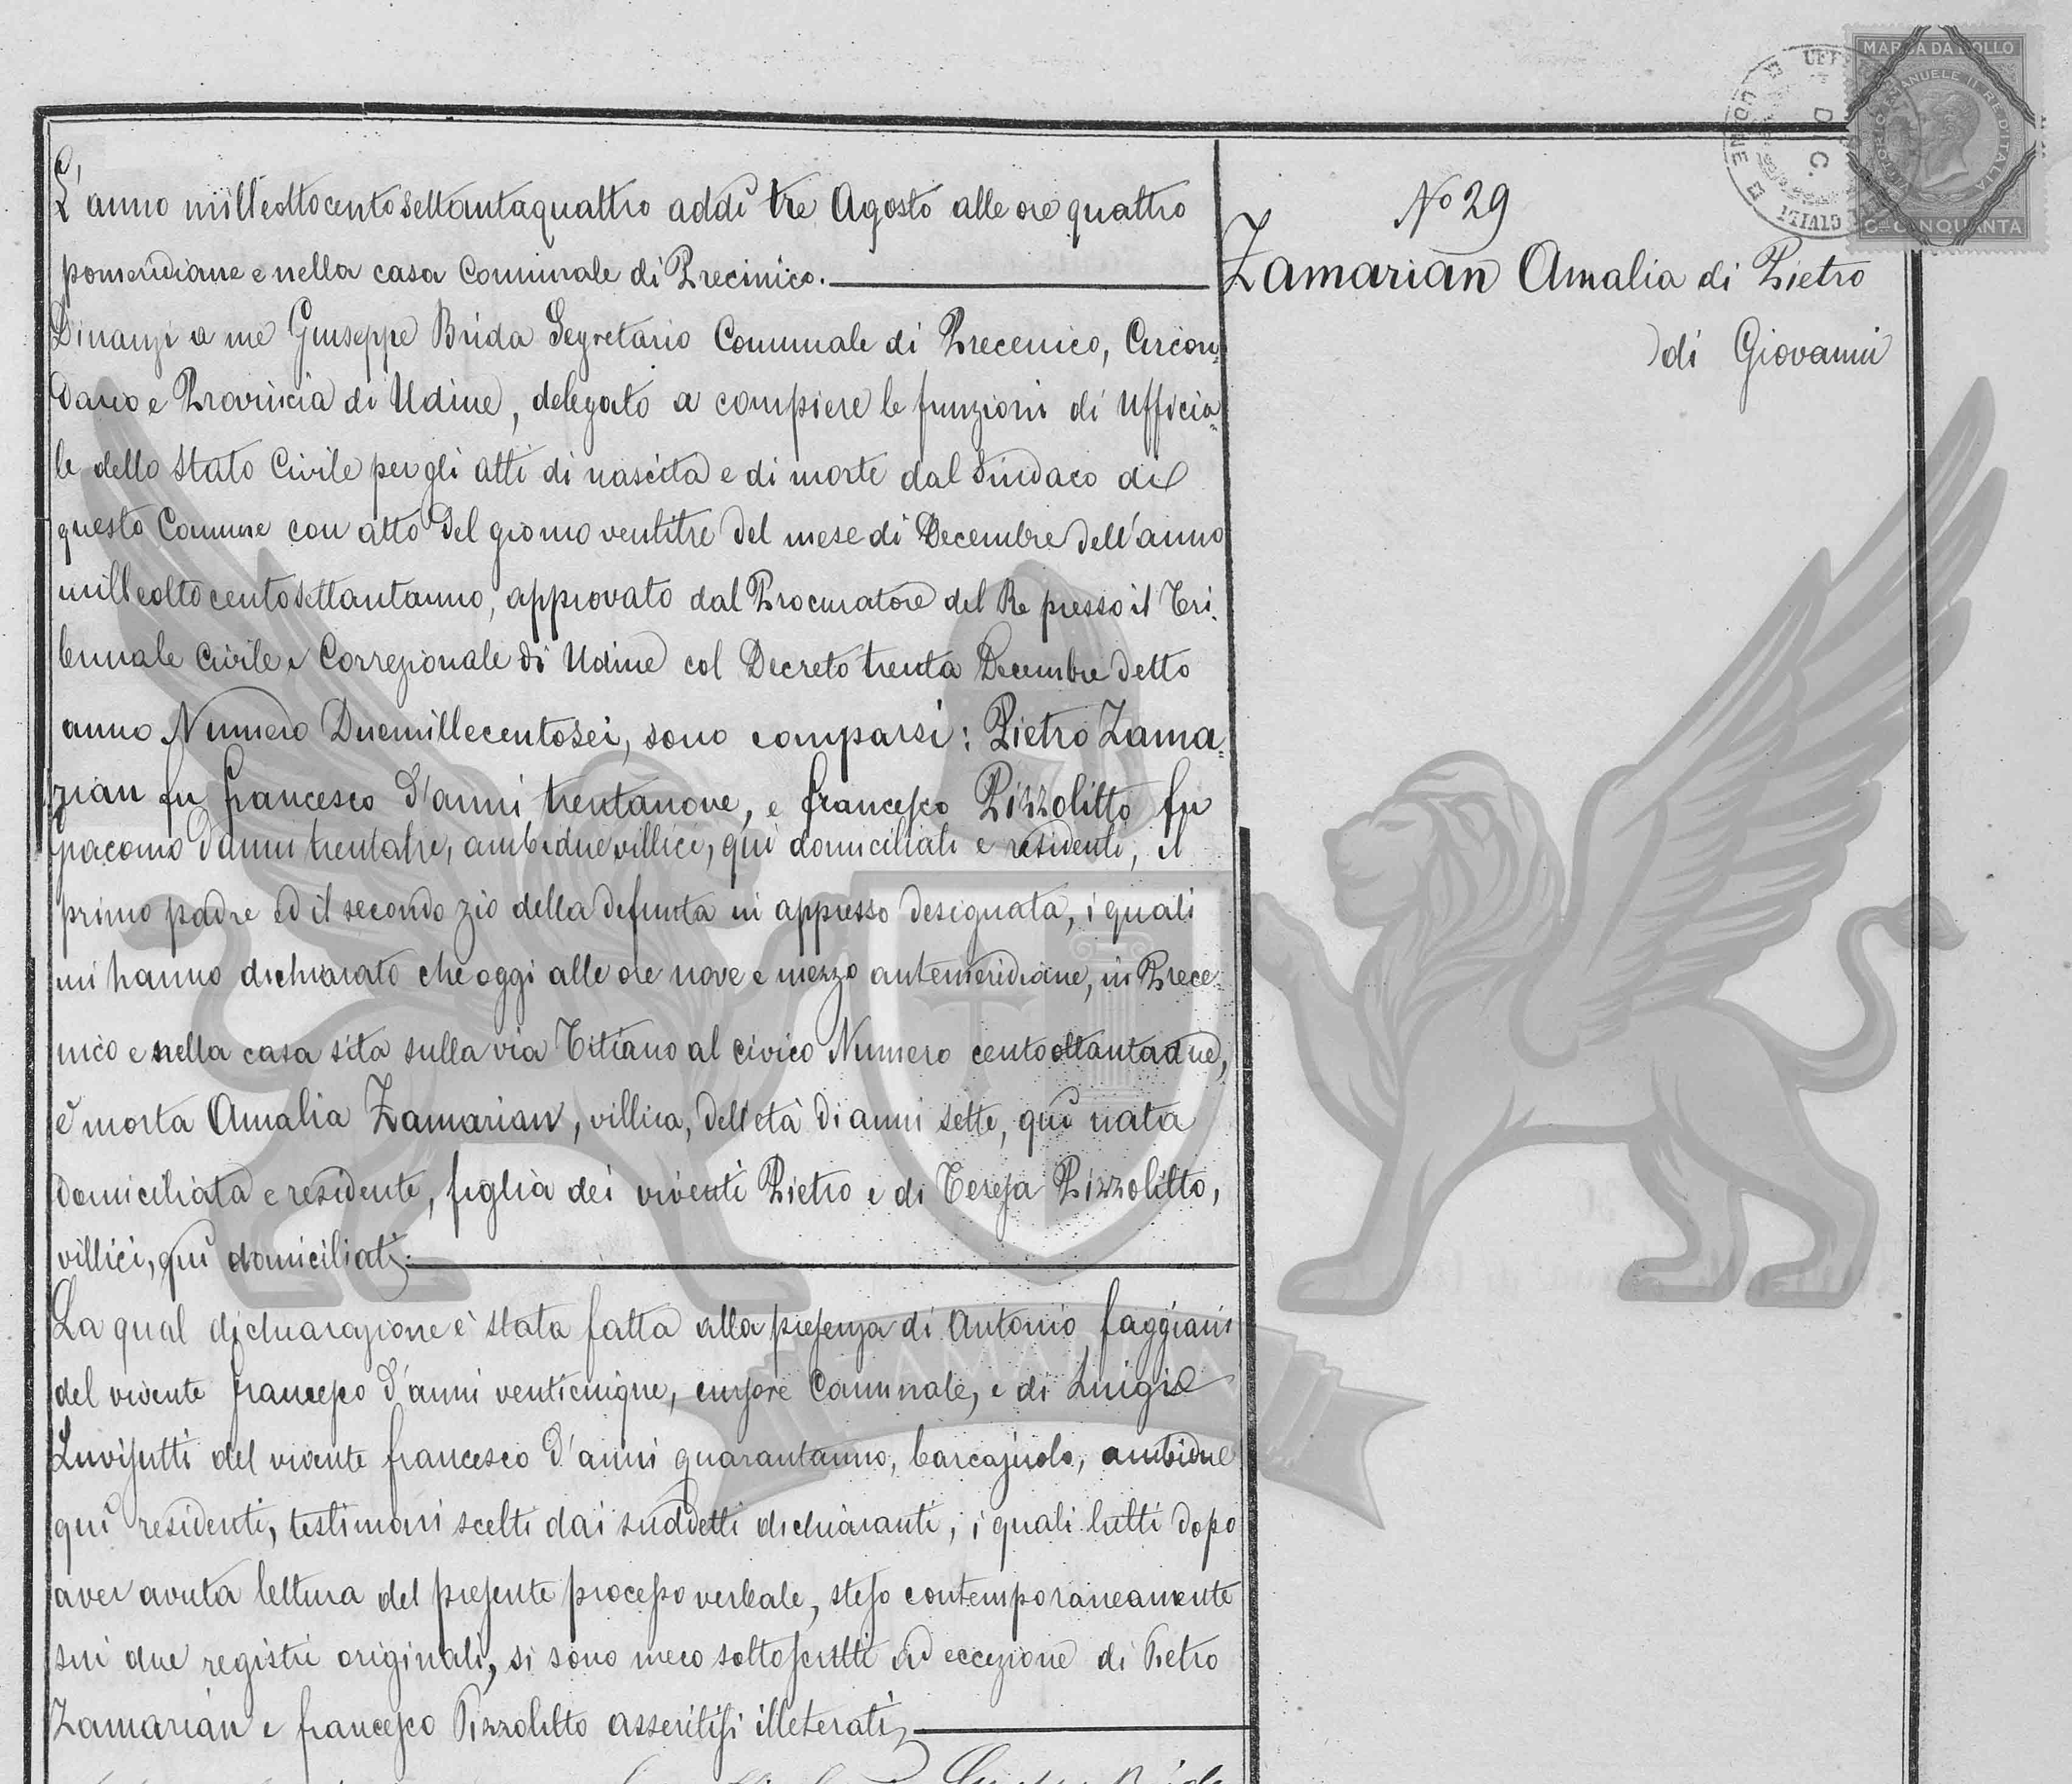 MARCA DA BOLLO
VITTORIO EMANUELE II RE D'ITALIA
CMI CINQUANTA
No 29
Zamarian Amalia di Pietro
di Giovanni
L'anno milleottocentosettantaquattro addì tre Agosto alle ore quattro
pomeridiane e nella casa Comunale di Precinico.
Dinanzi a me Giuseppe Brida Segretario Comunale di Precenico, Circon=
dario e Provincia di Udine, delegato a compiere le funzioni di Ufficia=
le dello Stato Civile per gli atti di nascita e di morte dal Sindaco di
questo Comune con atto del giorno ventitre del mese di Decembre dell'anno
milleottocentosettantauno, approvato dal Procuratore del Re presso il Tri=
bunale Civile e Correzionale di Udine col Decreto trenta Decembre detto
anno Numero Duemillecentosei, sono comparsi: Pietro Zama=
rian fu Francesco d'anni trentanove, e Francesco Pizzolitto fu
Giacomo d'anni trentatre, ambidue villici, quì domiciliati e residenti, il
primo padre ed il secondo zio della defunta in appresso designata, i quali
mi hanno dichiarato che oggi alle ore nove e mezzo antemeridiane, in Prece=
nico e nella casa sita sulla via Titiano al civico Numero centoottantadue,
è morta Amalia Zamarian, villica, dell'età di anni sette, quì nata
domiciliata e residente, figlia dei viventi Pietro e di Teresa Pizzolitto,
villici, quì domiciliati.
La qual dichiarazione è stata fatta alla presenza di Antonio Faggiani
del vivente Francesco d'anni venticinque, cursore Comunale, e di Luigi
Luvisutti del vivente Francesco d'anni quarantauno, barcajuolo, ambidue
quì residenti, testimoni scelti dai suddetti dichiaranti, i quali tutti dopo
aver avuta lettura del presente processo verbale, steso contemporaneamente
sui due registri originali, si sono meco sottoscritti ad eccezione di Pietro
Zamarian e Francesco Pizzolitto asseritisi illeterati.